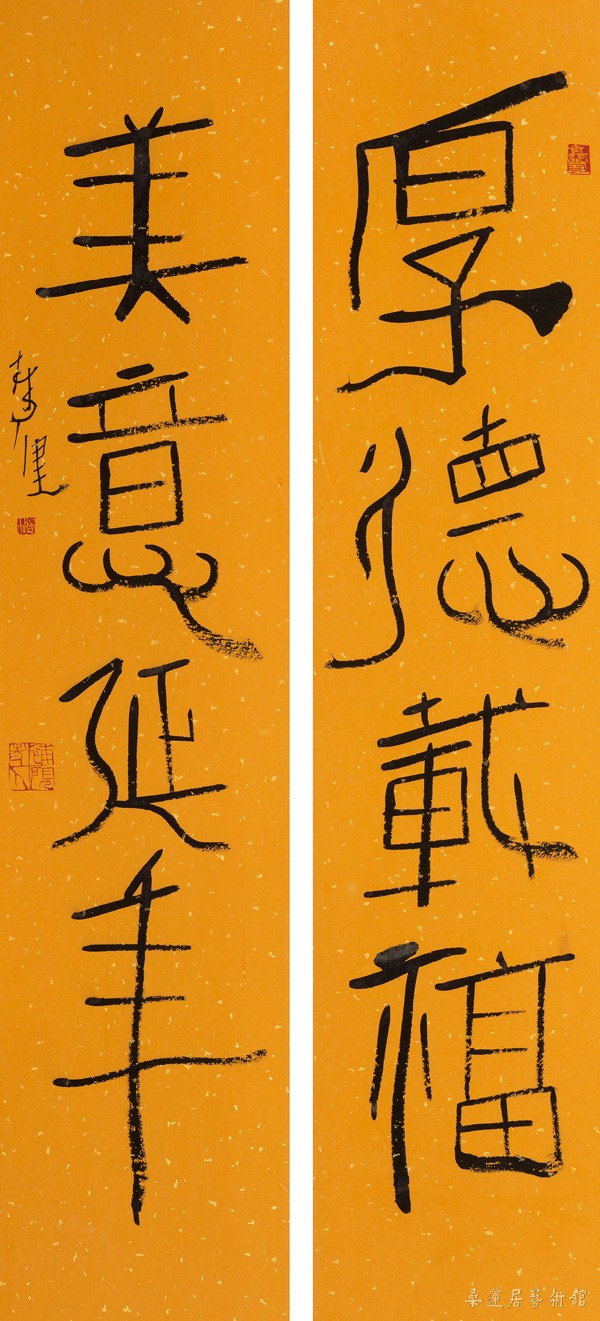 厚德載福
美意延年
桑蓮居藝術館